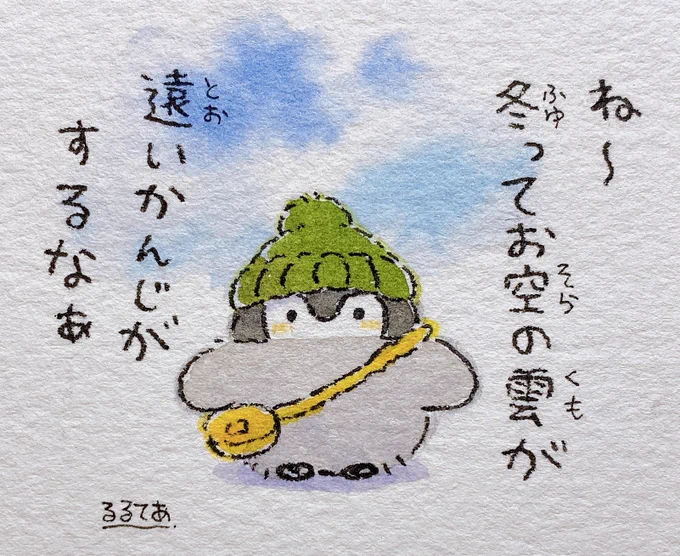 ね〜
冬ってお空の雲が
ふゆ
そら
くも
遠いかんじが
とお
するなぁ
るるてあ